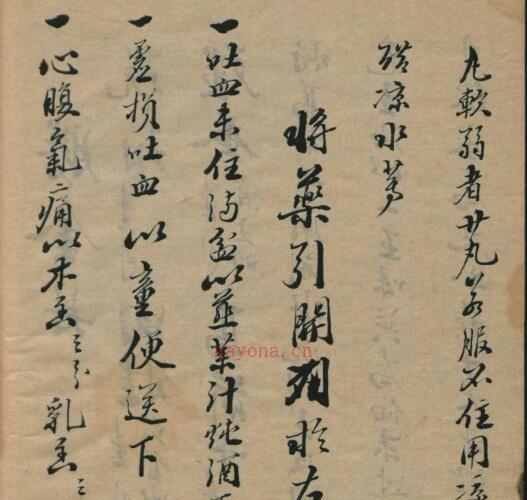 丸軟弱者廿丸若服不住用涼
凉水等
將藥引開列於左
一吐血未住满盆以韮菜汁炖酒
一虛損吐血以童便送下
一心腹氣痛以木香三分乳香三
ayona.cn